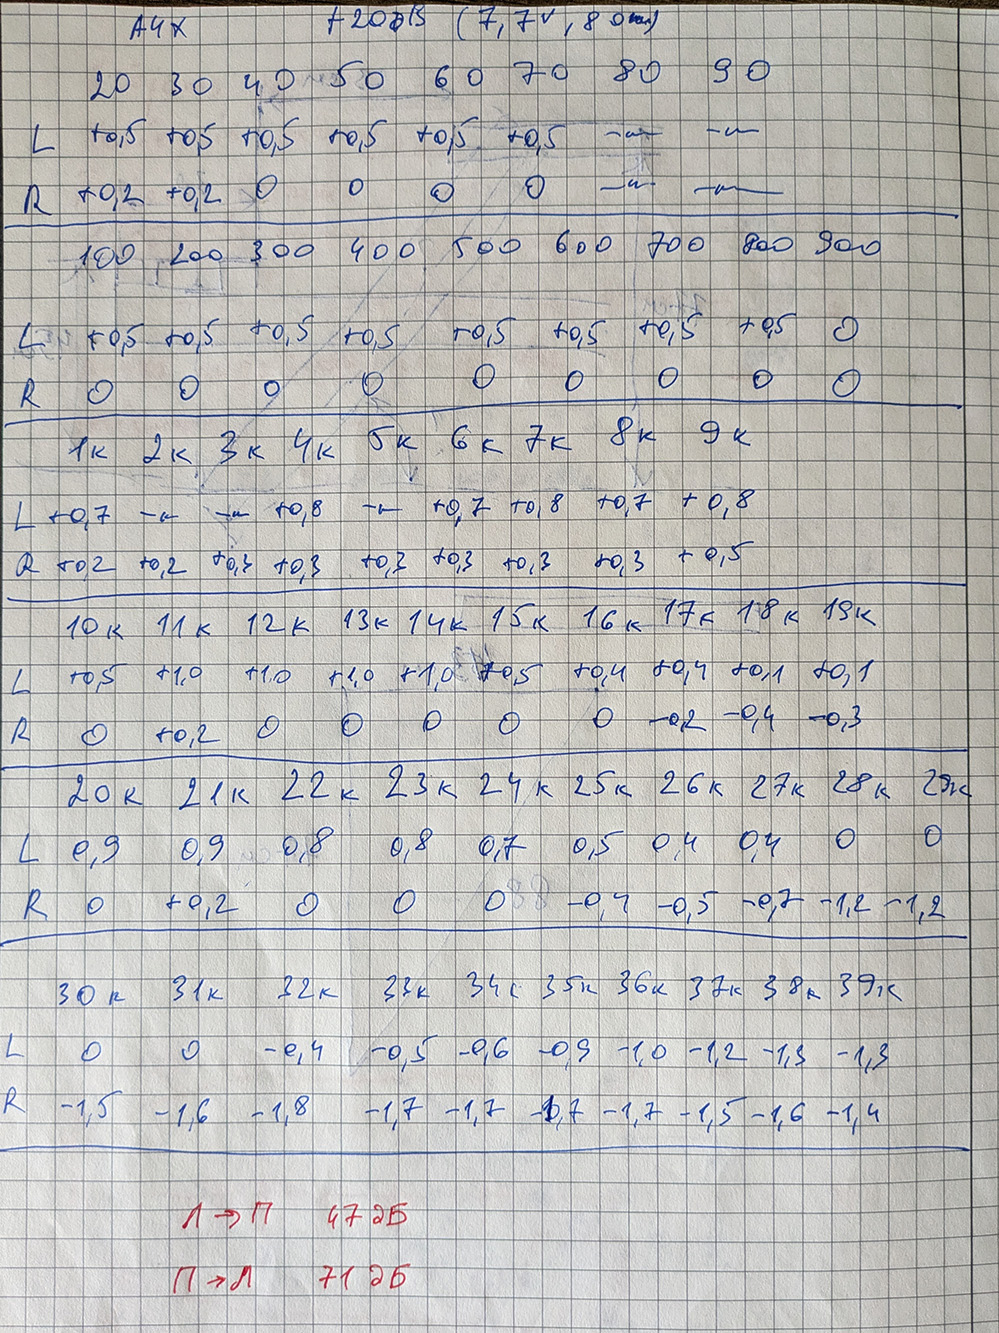 АЧХ +20дВ (7,7v, 8 Ом)
20 30 40 50 60 70 80 90
L +0,5 +0,5 +0,5 +0,5 +0,5 +0,5 -"- -"-
R +0,2 +0,2 0 0 0 0 -"- -"-
100 200 300 400 500 600 700 800 900
L +0,5 +0,5 +0,5 +0,5 +0,5 +0,5 +0,5 +0,5 0
R 0 0 0 0 0 0 0 0 0
1к 2к 3к 4к 5к 6к 7к 8к 9к
L +0,7 -"- -"- +0,8 -"- +0,7 +0,8 +0,7 +0,8
R +0,2 +0,2 +0,3 +0,3 +0,3 +0,3 +0,3 +0,3 +0,5
10к 11к 12к 13к 14к 15к 16к 17к 18к 19к
L +0,5 +1,0 +1,0 +1,0 +1,0 +0,5 +0,4 +0,4 +0,1 +0,1
R 0 +0,2 0 0 0 0 0 -0,2 -0,4 -0,3
20к 21к 22к 23к 24к 25к 26к 27к 28к 29к
L 0,9 0,9 0,8 0,8 0,7 0,5 0,4 0,4 0 0
R 0 +0,2 0 0 0 -0,4 -0,5 -0,7 -1,2 -1,2
30к 31к 32к 33к 34к 35к 36к 37к 38к 39к
L 0 0 -0,4 -0,5 -0,6 -0,9 -1,0 -1,2 -1,3 -1,3
R -1,5 -1,6 -1,8 -1,7 -1,7 -1,7 -1,7 -1,5 -1,6 -1,4
Л→П 47 дБ
П→Л 71 дБ